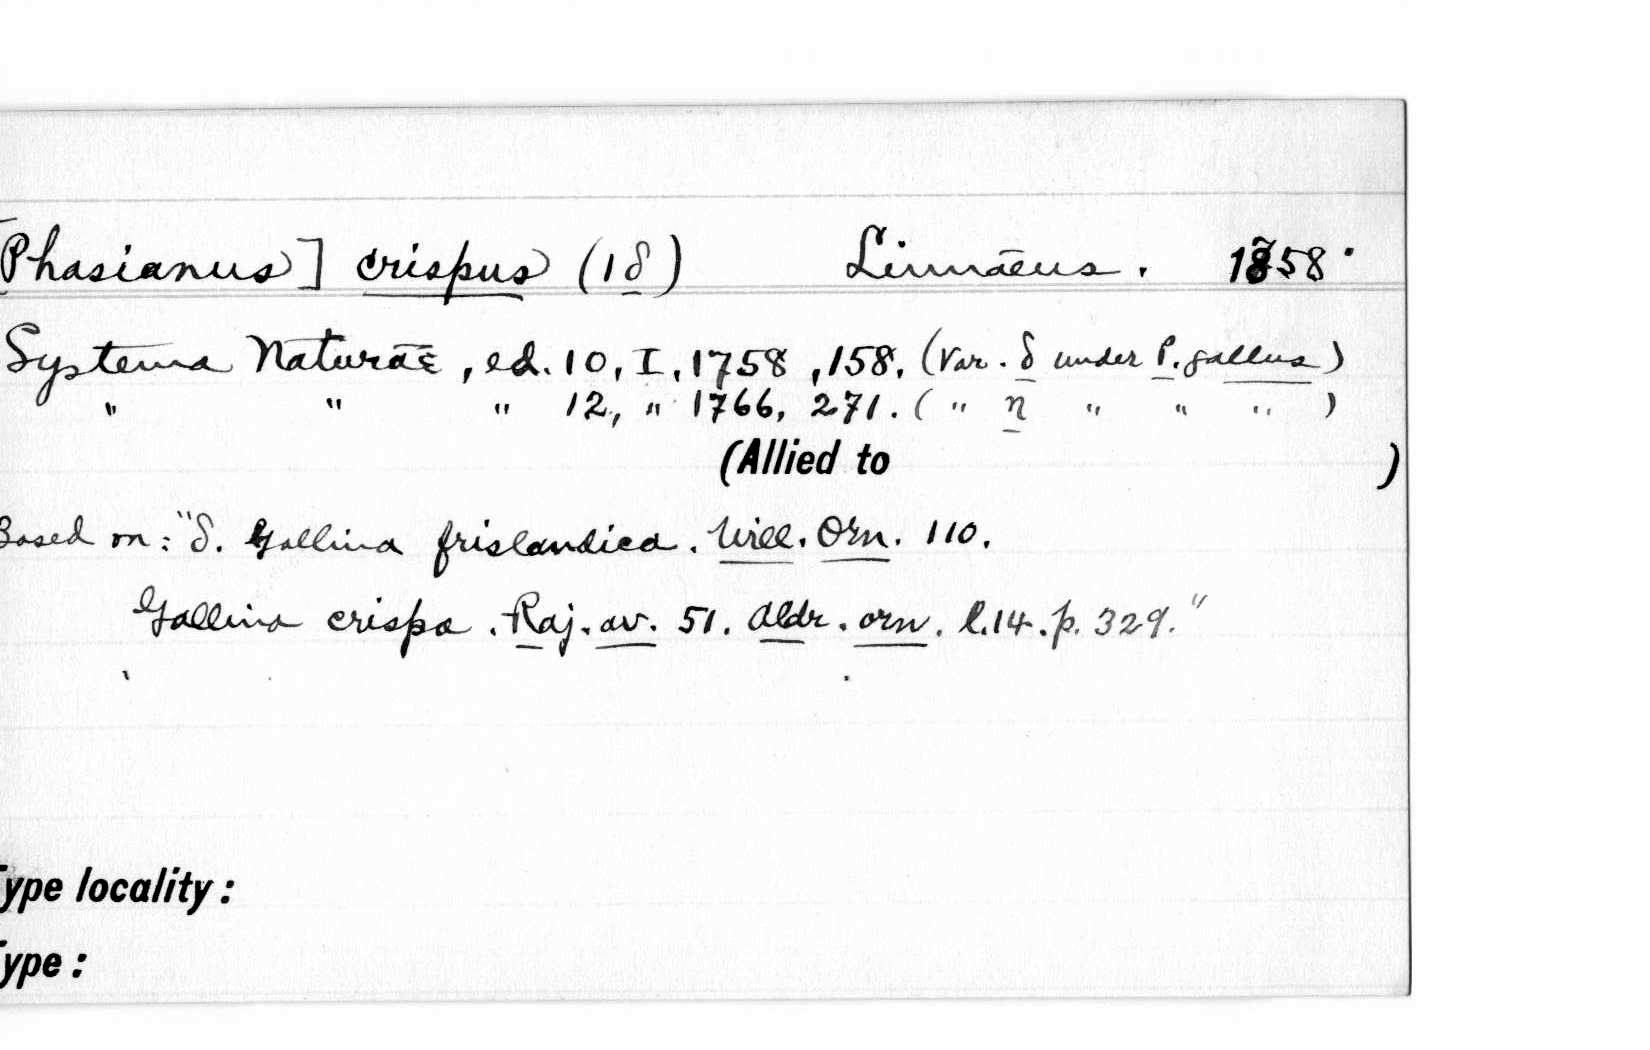 [Phasianus] crispus (1δ) Linnāeus. 1758.
Systema Naturāē, ed. 10, I, 1758, 158. (Var. δ under P. gallus)
" " " 12, " 1766, 271. ( " η " " " )
(Allied to )
Based on: "δ. Gallina frislandica. Will. Orn. 110.
Gallina crispa. Raj. av. 51. Aldr. orn. l.14. p. 329."
Type locality:
Type: